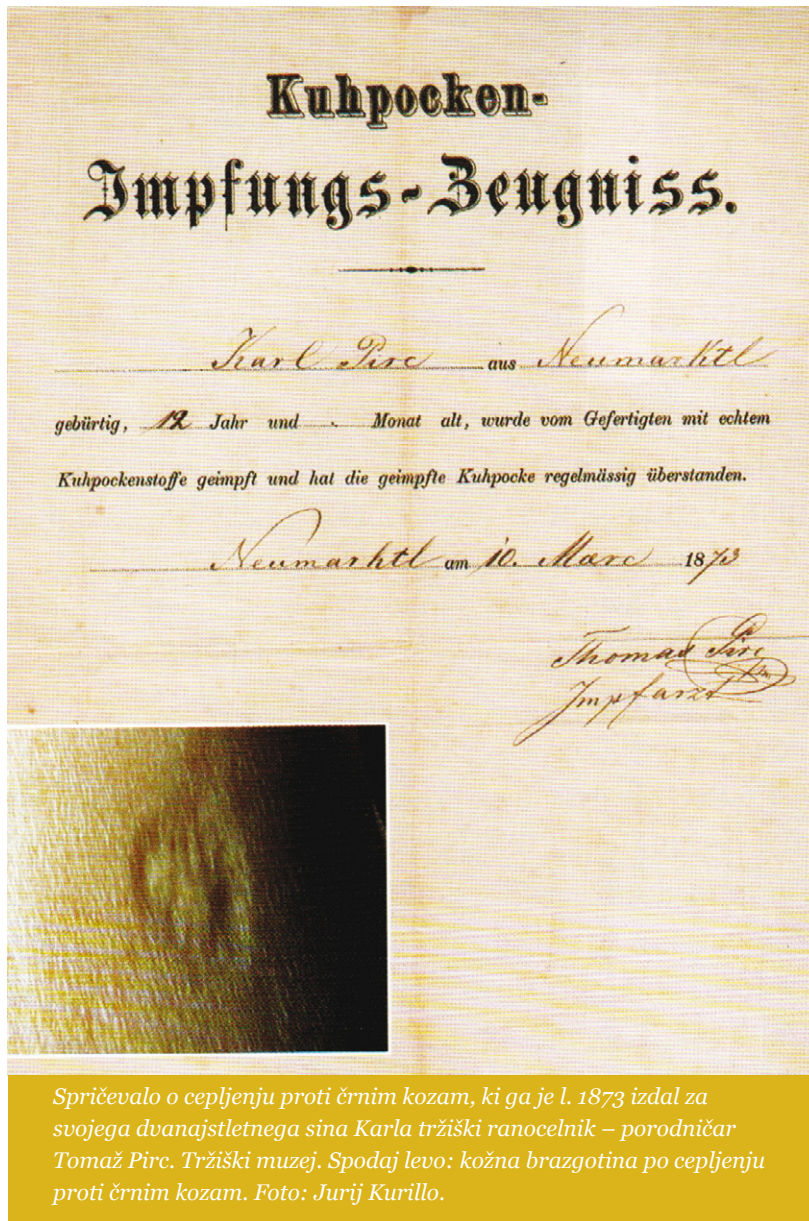 Kuhpocken-
Impfungs-Zeugniss.
Karl Pirc aus Neumarktl
gebürtig, 12 Jahr und . Monat alt, wurde vom Gefertigten mit echtem
Kuhpockenstoffe geimpft und hat die geimpfte Kuhpocke regelmässig überstanden.
Neumarktl am 10. Marc 1873
Thomas Pirc
Impfarzt
Spričevalo o cepljenju proti črnim kozam, ki ga je l. 1873 izdal za
svojega dvanajstletnega sina Karla tržiški ranocelnik – porodničar
Tomaž Pirc. Tržiški muzej. Spodaj levo: kožna brazgotina po cepljenju
proti črnim kozam. Foto: Jurij Kurillo.